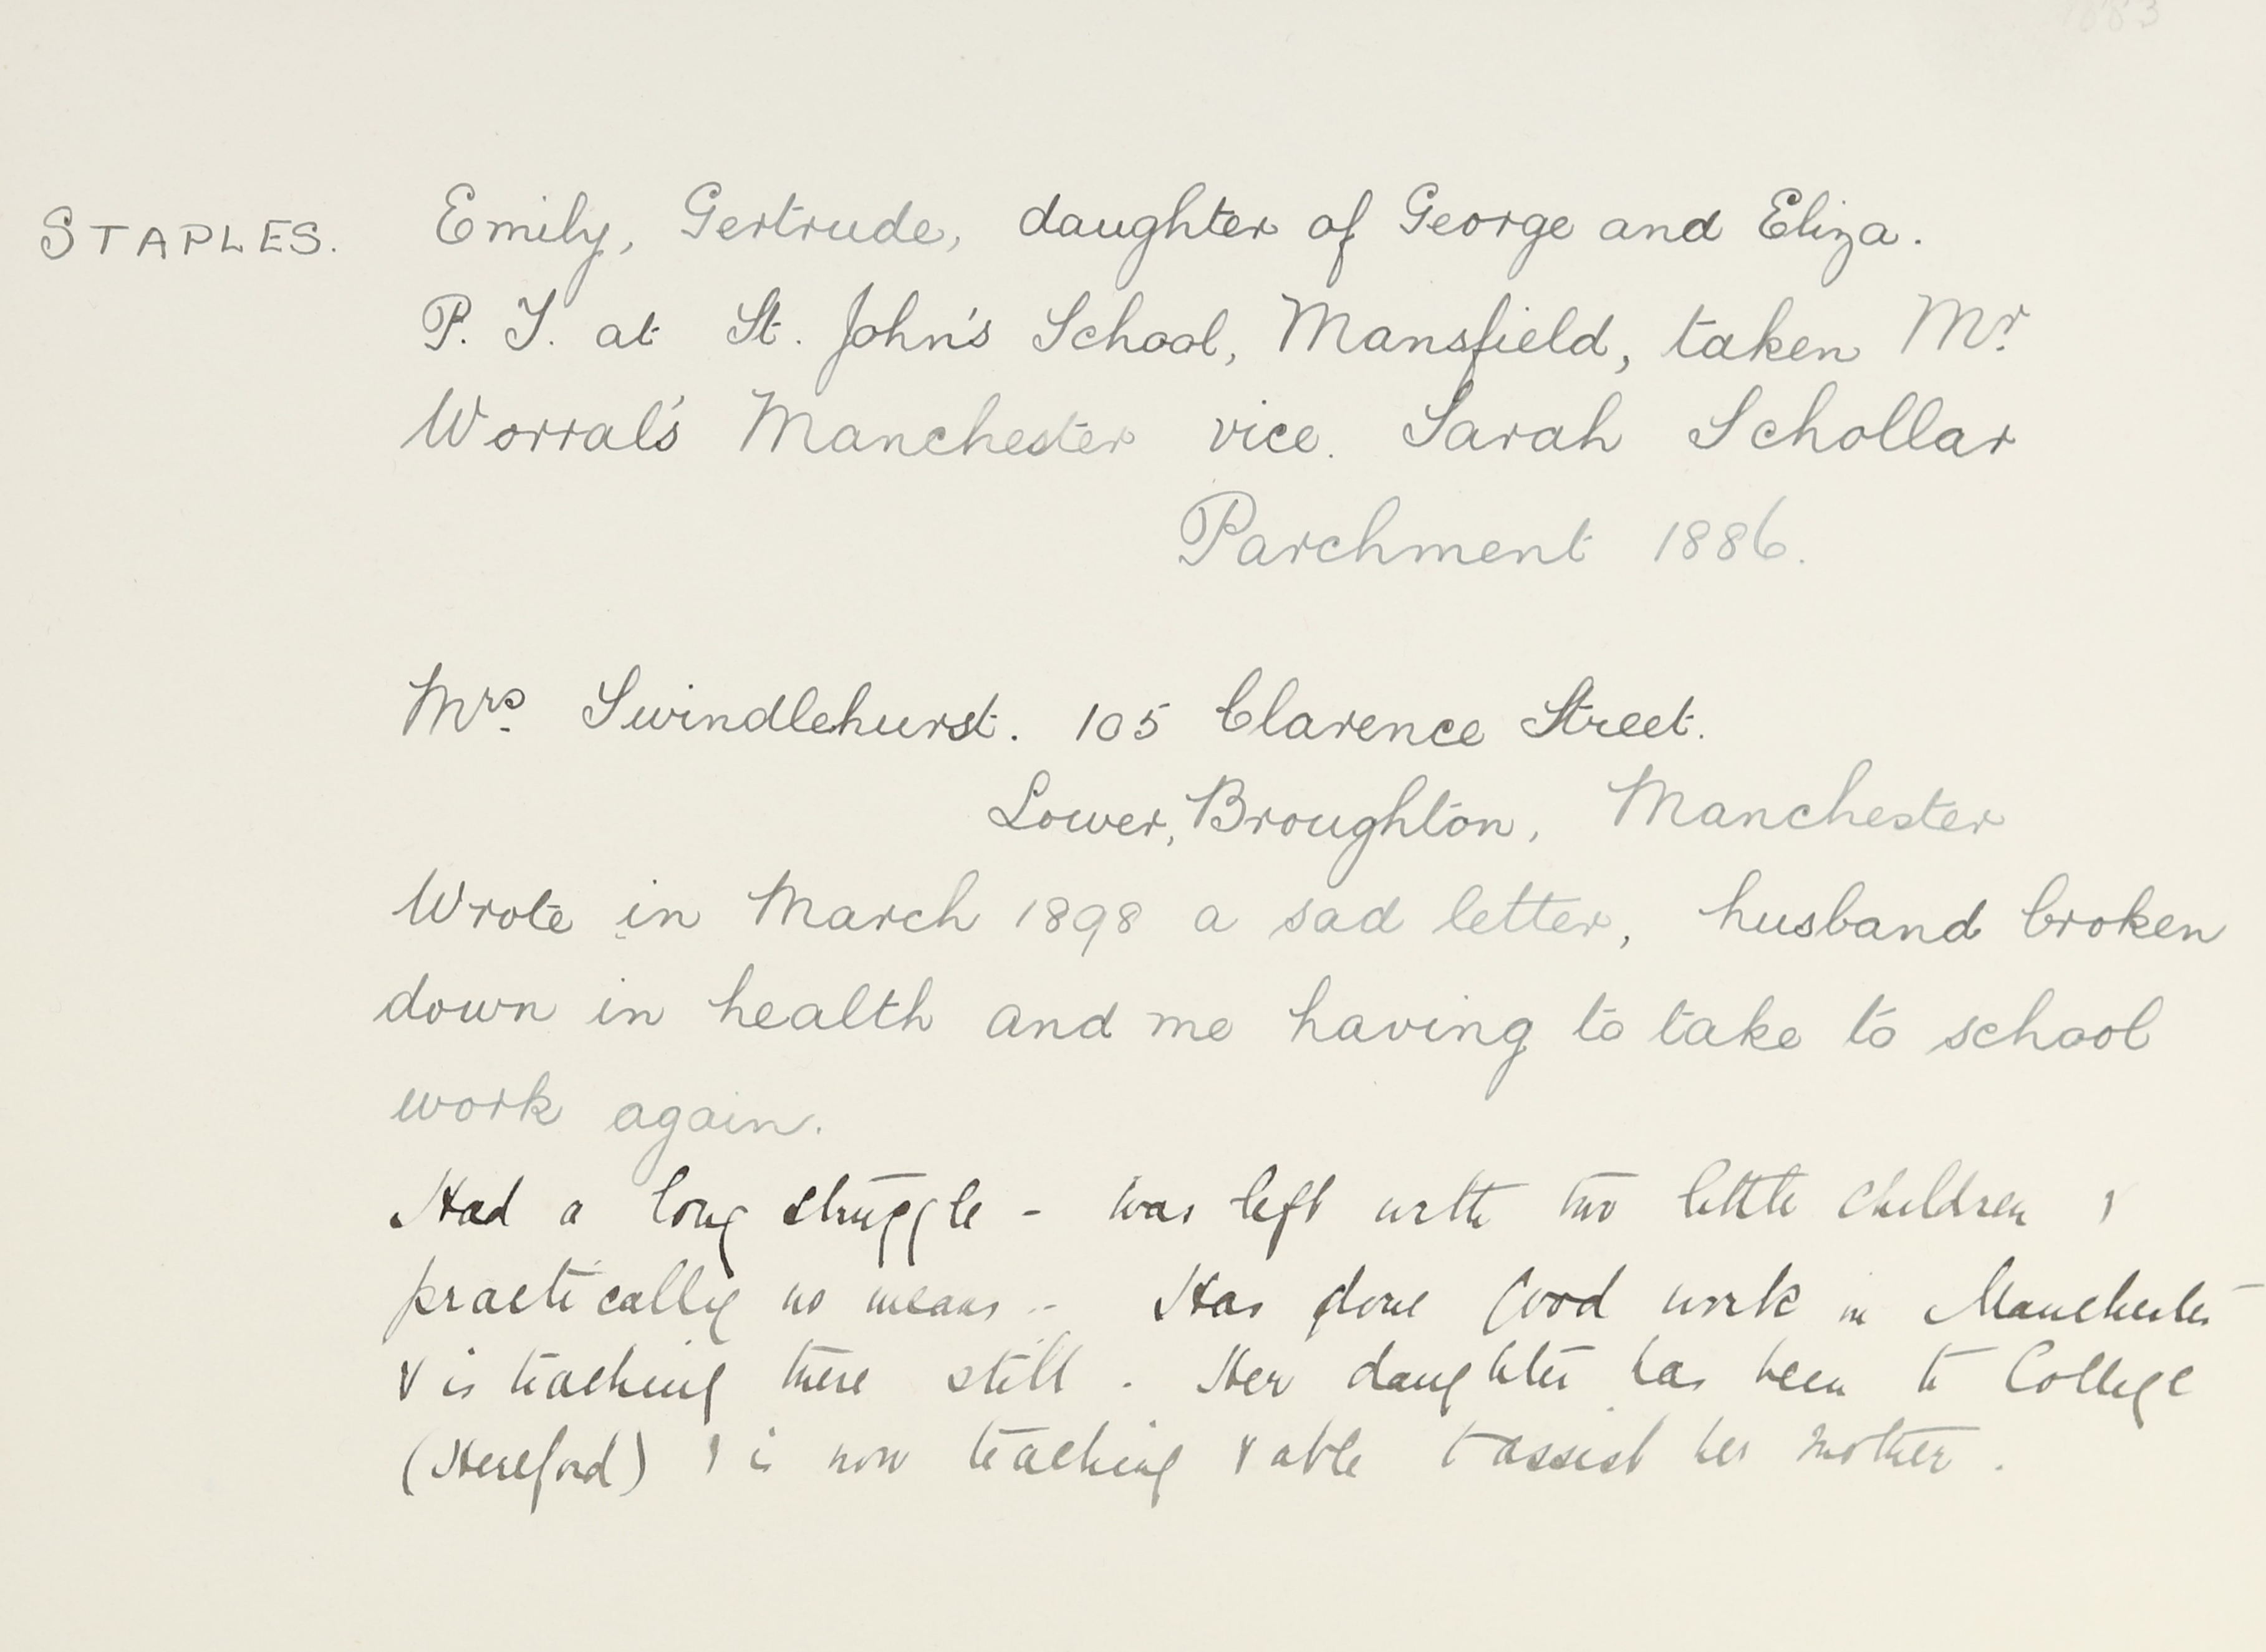 1883
STAPLES. Emily, Gertrude, daughter of George and Eliza.
P. T. at St. John's School, Mansfield, taken Mr
Worral's Manchester vice. Sarah Schollar
Parchment 1886.
Mrs Swindlehurst. 105 Clarence Street.
Lower, Broughton, Manchester
Wrote in March 1898 a sad letter, husband broken
down in health and me having to take to school
work again.
Had a long struggle - was left with two little children &
practically no means - Has done good work in Manchester
& is teaching there still. Her daughter has been to College
(Hereford) & is now teaching & able to assist her mother.